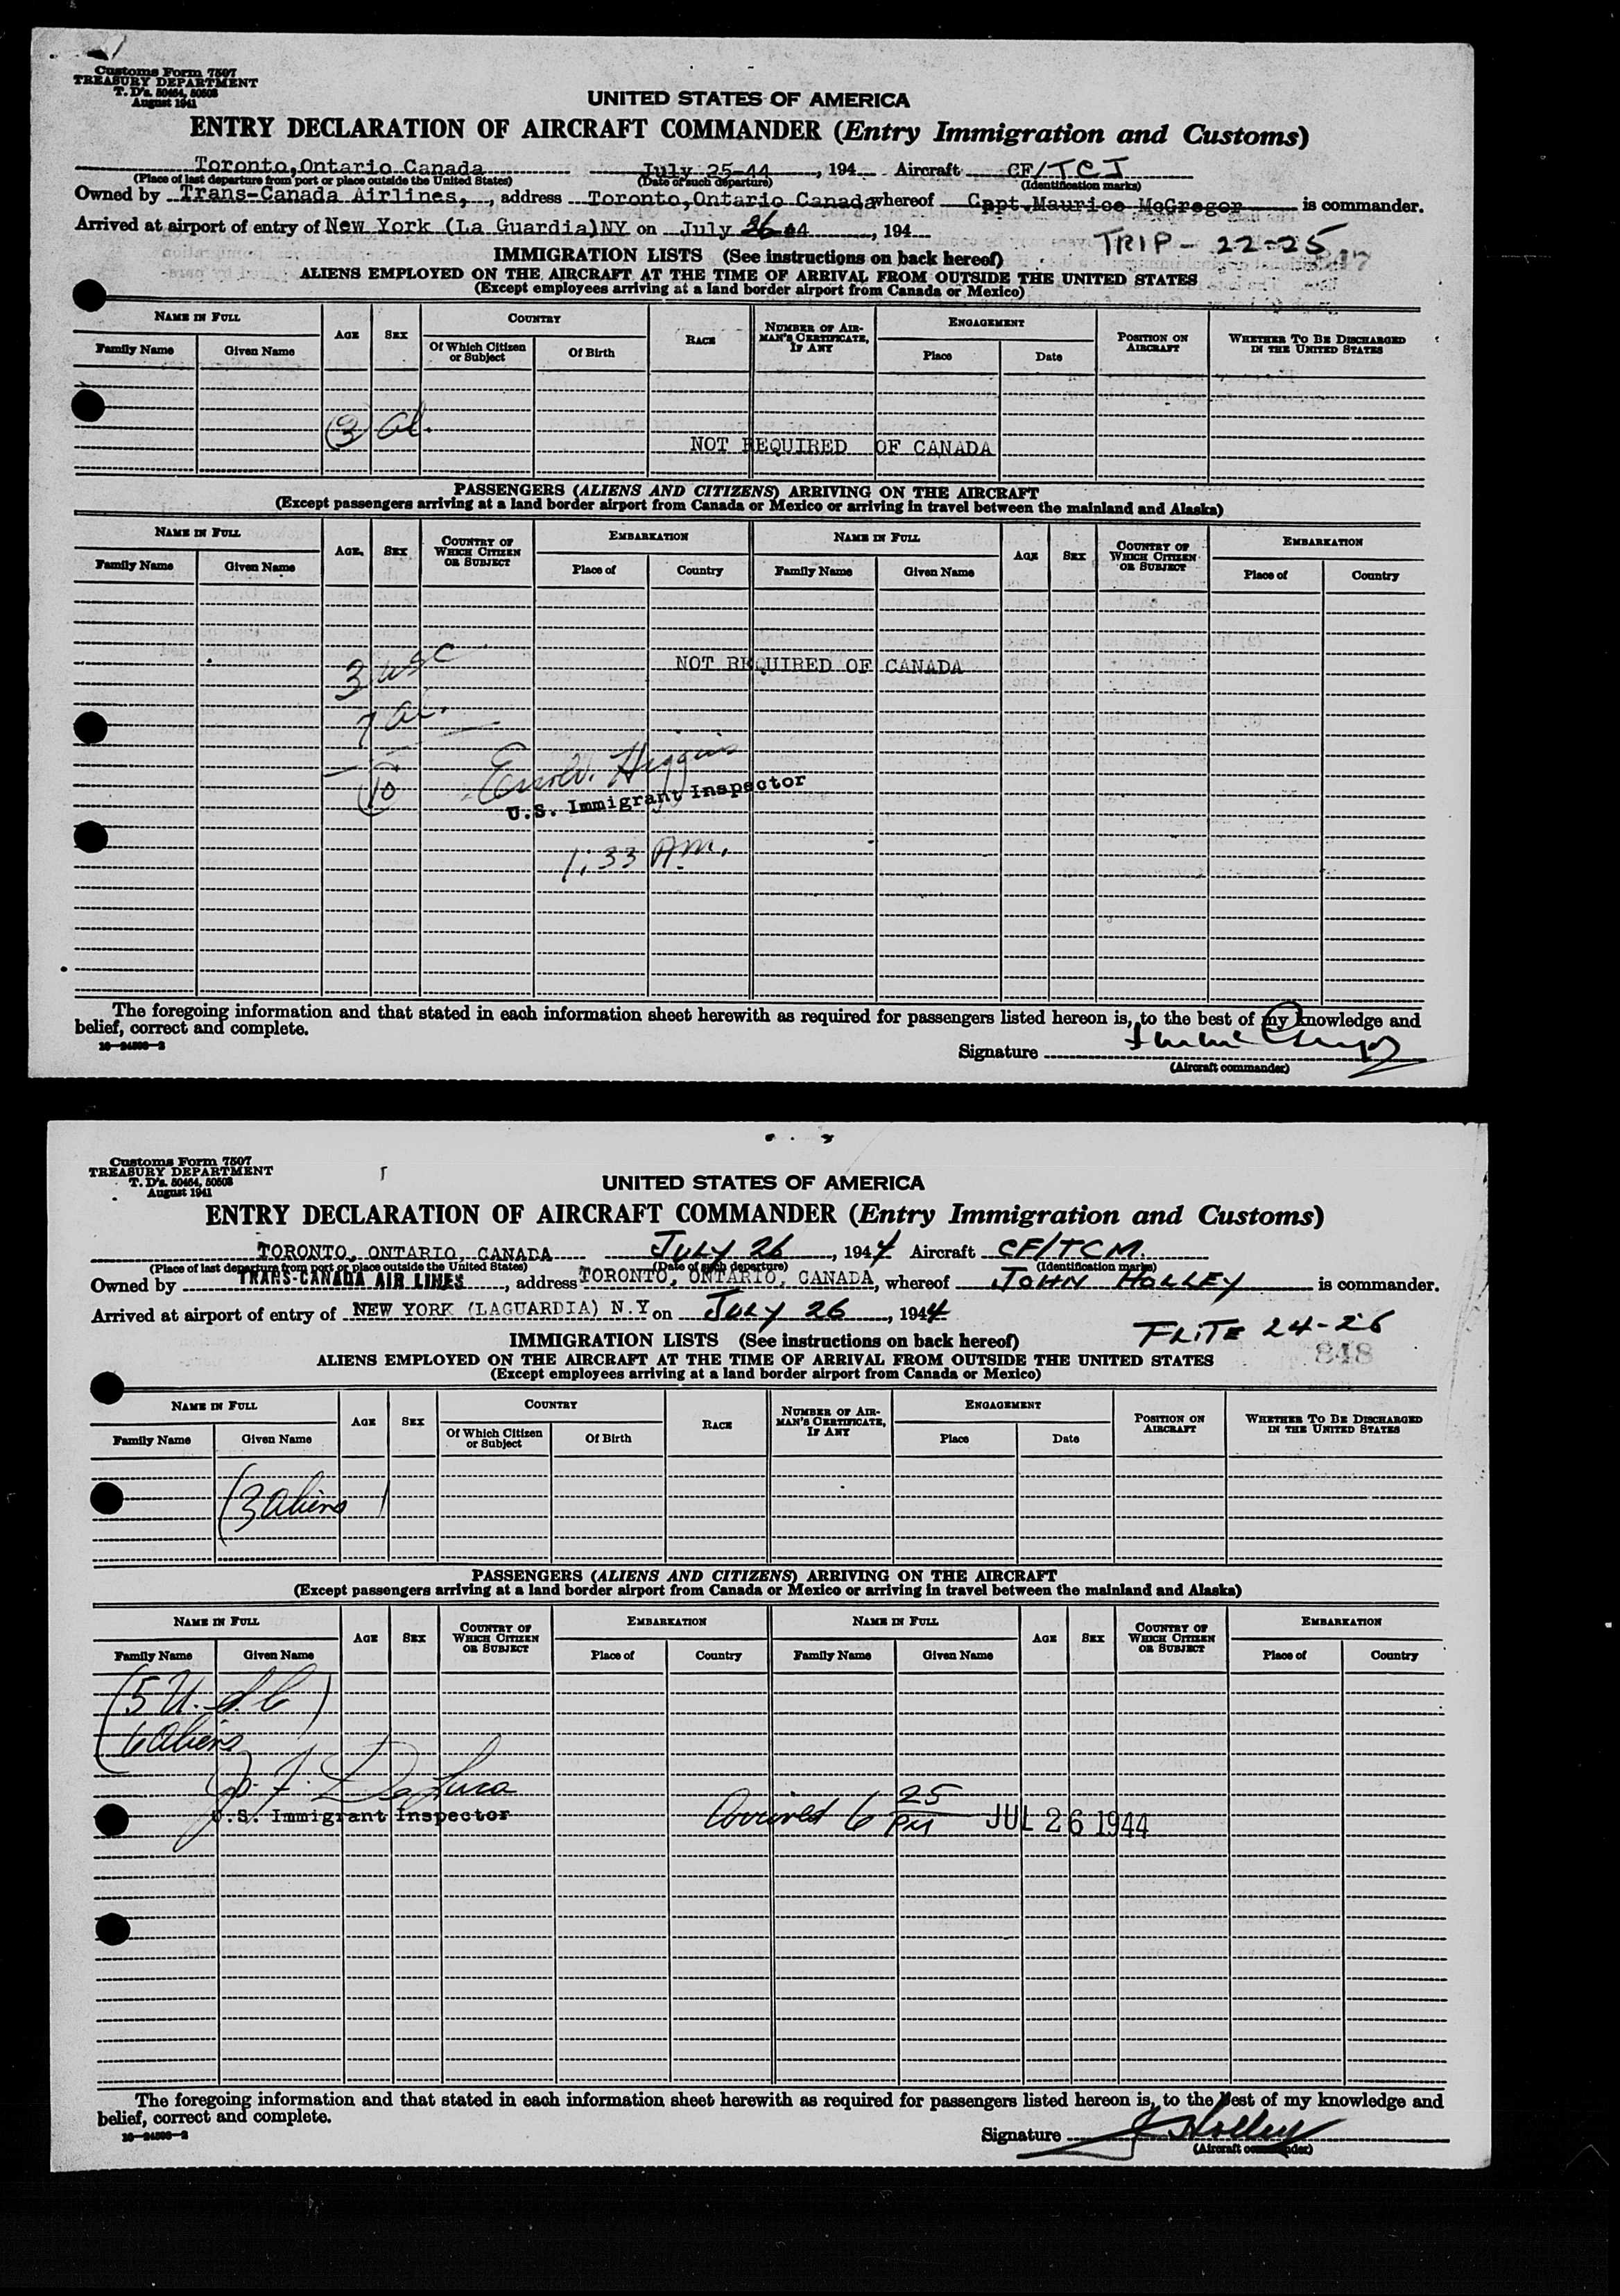 Customs Form 7507
TREASURY DEPARTMENT
T. D's. 50464, 50503
August 1941
UNITED STATES OF AMERICA
ENTRY DECLARATION OF AIRCRAFT COMMANDER (Entry Immigration and Customs)
Toronto,Ontario Canada July 25-44, 194 Aircraft CF/TCJ
(Place of last departure from port or place outside the United States) (Date of such departure) (Identification marks)
Owned by Trans-Canada Airlines, , address Toronto,Ontario Canada whereof Capt.Maurice McGregor is commander.
Arrived at airport of entry of New York (La Guardia)NY on July 26 44, 194
TRIP - 22-25
847
IMMIGRATION LISTS (See instructions on back hereof)
ALIENS EMPLOYED ON THE AIRCRAFT AT THE TIME OF ARRIVAL FROM OUTSIDE THE UNITED STATES
(Except employees arriving at a land border airport from Canada or Mexico)
NAME IN FULL AGE SEX COUNTRY RACE NUMBER OF AIRMAN'S CERTIFICATE, IF ANY ENGAGEMENT POSITION ON AIRCRAFT WHETHER TO BE DISCHARGED IN THE UNITED STATES
Family Name Given Name Of Which Citizen or Subject Of Birth Place Date
3 al.
NOT REQUIRED OF CANADA
PASSENGERS (ALIENS AND CITIZENS) ARRIVING ON THE AIRCRAFT
(Except passengers arriving at a land border airport from Canada or Mexico or arriving in travel between the mainland and Alaska)
NAME IN FULL AGE SEX COUNTRY OF WHICH CITIZEN OR SUBJECT EMBARKATION NAME IN FULL AGE SEX COUNTRY OF WHICH CITIZEN OR SUBJECT EMBARKATION
Family Name Given Name Place of Country Family Name Given Name Place of Country
3 usc
NOT REQUIRED OF CANADA
7 al.
10
Higgins
U.S. Immigrant Inspector
1:33 A.m.
The foregoing information and that stated in each information sheet herewith as required for passengers listed hereon is, to the best of my knowledge and
belief, correct and complete.
16—24500-2
Signature
(Aircraft commander)
Customs Form 7507
TREASURY DEPARTMENT
T. D's. 50464, 50503
August 1941
UNITED STATES OF AMERICA
ENTRY DECLARATION OF AIRCRAFT COMMANDER (Entry Immigration and Customs)
TORONTO, ONTARIO, CANADA JULY 26, 1944 Aircraft CF/TCM.
(Place of last departure from port or place outside the United States) (Date of such departure) (Identification marks)
Owned by TRANS-CANADA AIR LINES, address TORONTO, ONTARIO, CANADA, whereof JOHN HOLLEY is commander.
Arrived at airport of entry of NEW YORK (LAGUARDIA) N.Y on JULY 26, 1944
FLITE 24-26
848
IMMIGRATION LISTS (See instructions on back hereof)
ALIENS EMPLOYED ON THE AIRCRAFT AT THE TIME OF ARRIVAL FROM OUTSIDE THE UNITED STATES
(Except employees arriving at a land border airport from Canada or Mexico)
NAME IN FULL AGE SEX COUNTRY RACE NUMBER OF AIRMAN'S CERTIFICATE, IF ANY ENGAGEMENT POSITION ON AIRCRAFT WHETHER TO BE DISCHARGED IN THE UNITED STATES
Family Name Given Name Of Which Citizen or Subject Of Birth Place Date
(3 aliens)
PASSENGERS (ALIENS AND CITIZENS) ARRIVING ON THE AIRCRAFT
(Except passengers arriving at a land border airport from Canada or Mexico or arriving in travel between the mainland and Alaska)
NAME IN FULL AGE SEX COUNTRY OF WHICH CITIZEN OR SUBJECT EMBARKATION NAME IN FULL AGE SEX COUNTRY OF WHICH CITIZEN OR SUBJECT EMBARKATION
Family Name Given Name Place of Country Family Name Given Name Place of Country
(5 U.S.C)
(6 aliens
Jo. F. DeLuca
U.S. Immigrant Inspector
Arrived 6 25 PM JUL 26 1944
The foregoing information and that stated in each information sheet herewith as required for passengers listed hereon is, to the best of my knowledge and
belief, correct and complete.
16—24500-2
Signature J Holley
(Aircraft commander)